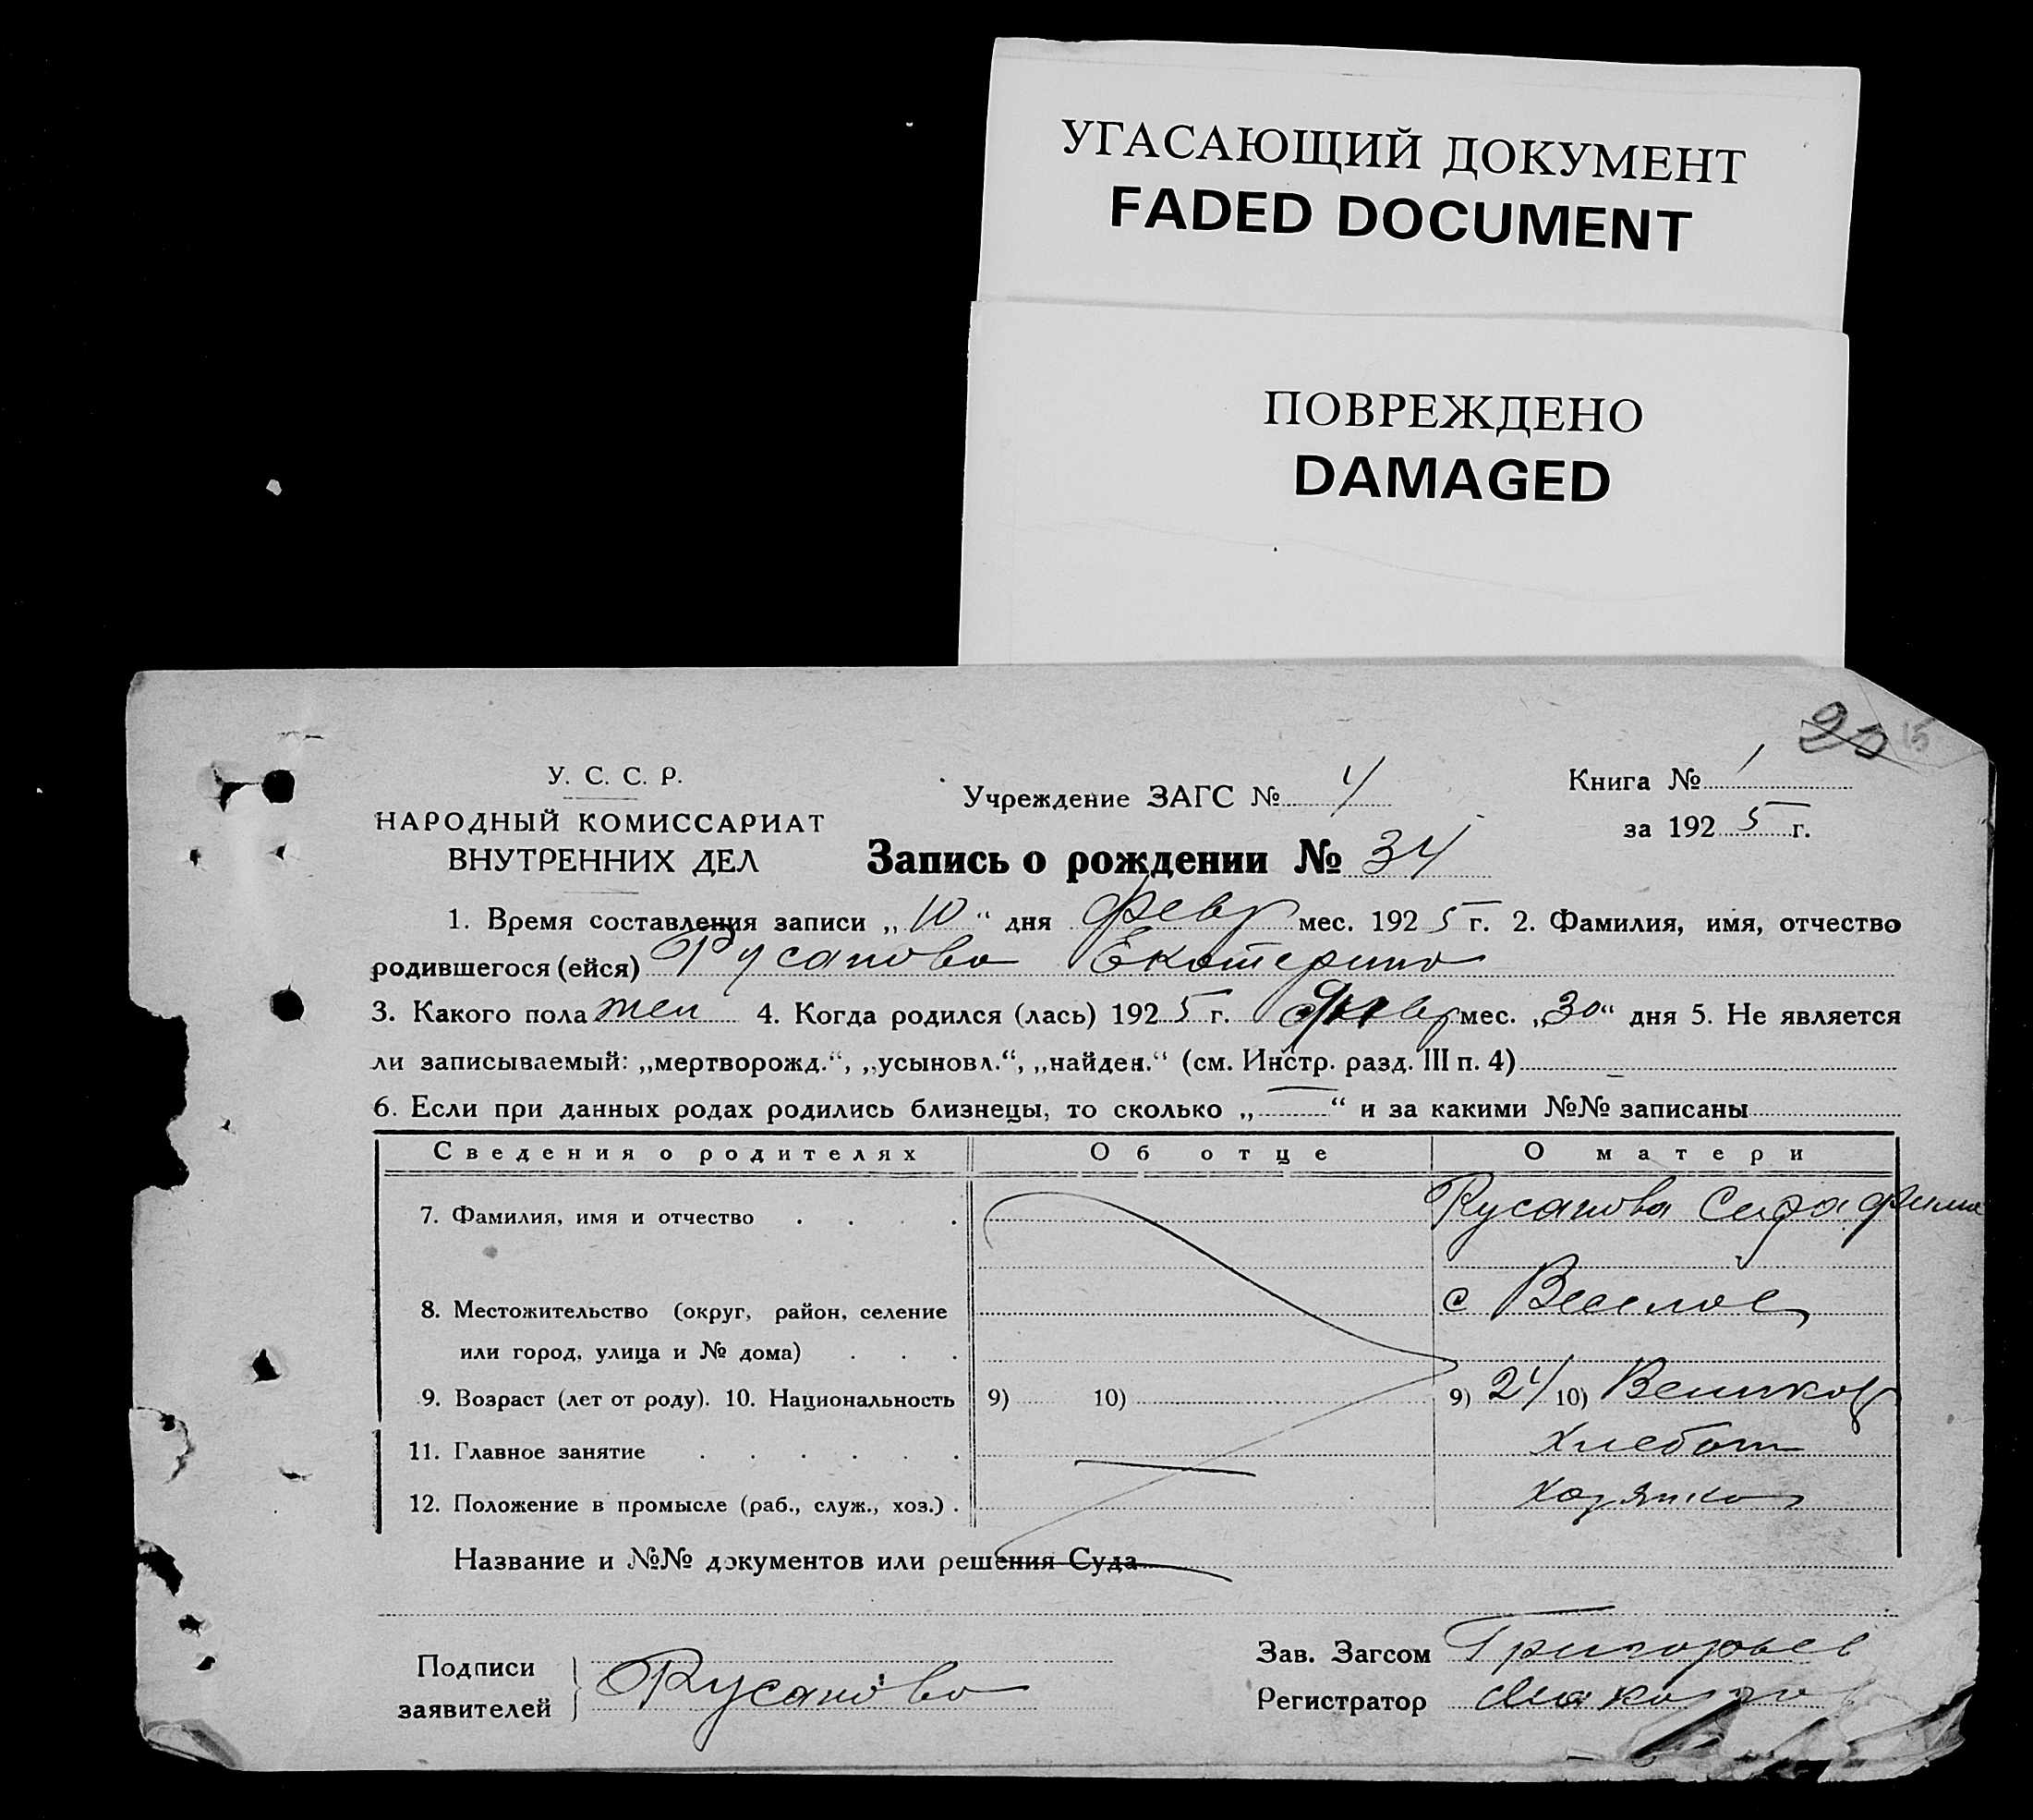 УГАСАЮЩИЙ ДОКУМЕНТ
FADED DOCUMENT
ПОВРЕЖДЕНО
DAMAGED
20 15
У. С. С. Р.
НАРОДНЫЙ КОМИССАРИАТ
ВНУТРЕННИХ ДЕЛ
Учреждение ЗАГС № 4
Книга № 1
за 1925 г.
Запись о рождении № 34
1. Время составления записи „10“ дня февр мес. 1925 г. 2. Фамилия, имя, отчество
родившегося (ейся) Русанова Екатерина
3. Какого пола жен 4. Когда родился (лась) 1925 г. Янвр мес. „30“ дня 5. Не является
ли записываемый: „мертворожд.“, „усыновл.“, „найден.“ (см. Инстр. разд. III п. 4) –
6. Если при данных родах родились близнецы, то сколько „—“ и за какими №№ записаны
Сведения о родителях Об отце О матери
7. Фамилия, имя и отчество . . . . Русанова Серафима
8. Местожительство (округ, район, селение с Веселое
или город, улица и № дома) . . .
9. Возраст (лет от роду). 10. Национальность 9) 10) 9) 24 10) Великор
11. Главное занятие . . . . . . Хлебоп
12. Положение в промысле (раб., служ., хоз.) . хозяйка
Название и №№ документов или решения Суда
Подписи
заявителей } Русанова
Зав. Загсом Григорьев
Регистратор